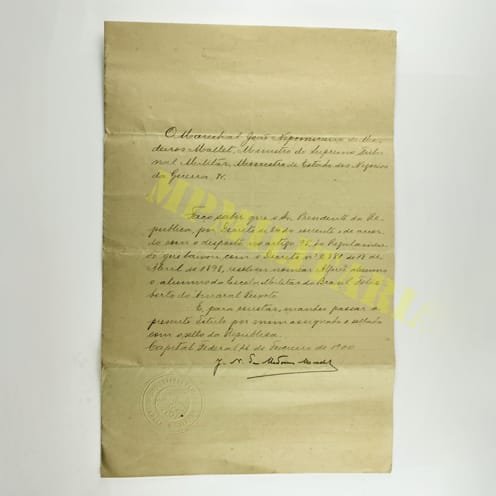 O Marechal João Nepomuceno de Me-
deiros Mallet, Ministro do Supremo Tribu-
nal Militar, Ministro de Estado dos Negocios
da Guerra, &.
Faço saber que o Sr. Presidente da Re-
publica, por Decreto de 24 do corrente e de accor-
do com o disposto no artigo 95 do Regulamen-
to que baixou com o Decreto nº 2.881 de 18 de
Abril de 1898, resolveu nomear Alferes alumno
o alumno da Escola Militar do Brasil
berto do Amaral Peixoto
E, para constar, mandei passar o
presente Titulo por mim assignado e sellado
com o sello da Republica.
Capital Federal, de Fevereiro de 1900
J. N. de Medeiros Mallet
MBMILITARIA